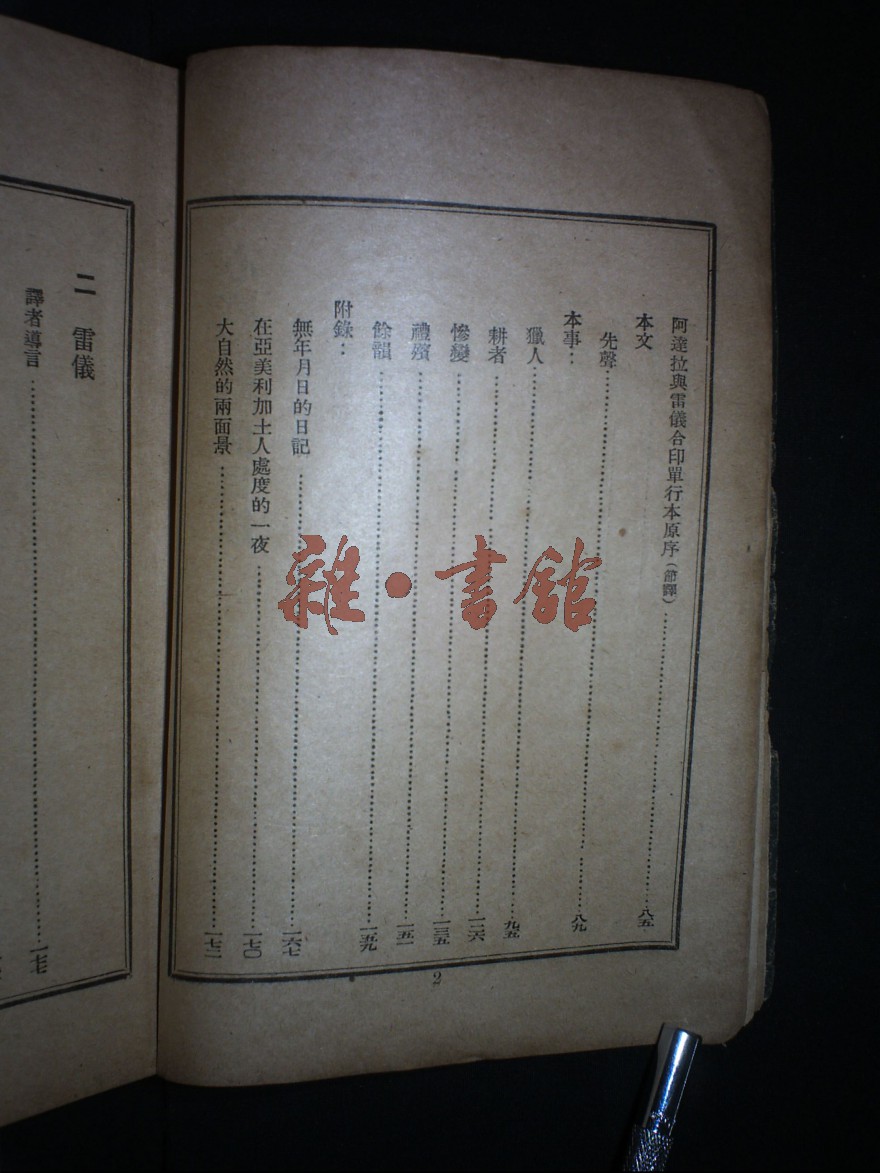 阿達拉與雷儀合印單行本原序(節譯)……八五
本文
先聲……八九
本事:
獵人……九五
耕者……一二六
慘變……一三五
禮殯……一五一
餘韻……一五九
附錄:
無年月日的日記……一六七
在亞美利加土人處度的一夜……一七〇
大自然的兩面景……一七二
2
二 雷儀
譯者導言……一七七
雜·書館